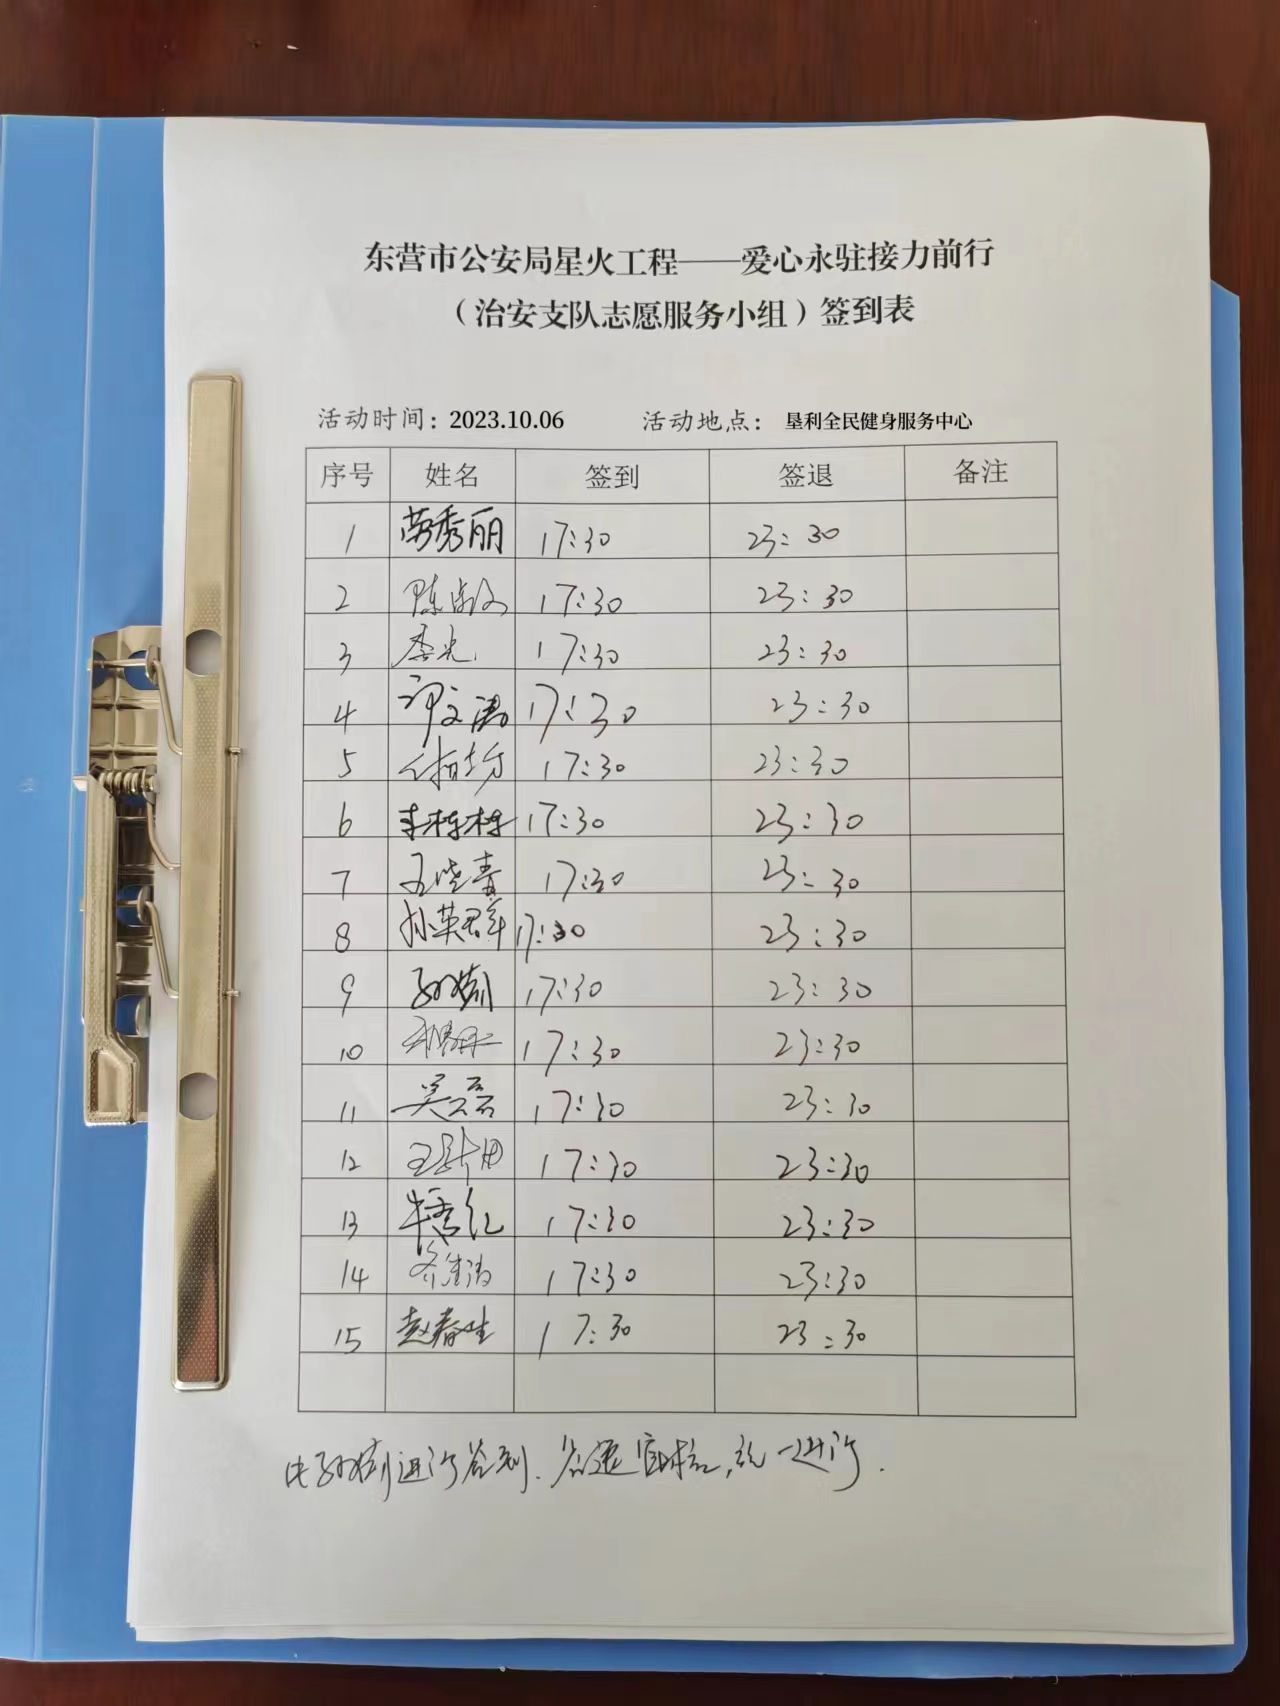 东营市公安局星火工程——爱心永驻接力前行
（治安支队志愿服务小组）签到表
活动时间：2023.10.06 活动地点：垦利全民健身服务中心
序号 姓名 签到 签退 备注
1 荣秀丽 17:30 23:30
2 17:30 23:30
3 李光 17:30 23:30
4 文涛 17:30 23:30
5 17:30 23:30
6 李栋栋 17:30 23:30
7 王晓青 17:30 23:30
8 孙英群 17:30 23:30
9 17:30 23:30
10 17:30 23:30
11 吴磊 17:30 23:30
12 17:30 23:30
13 牛秀红 17:30 23:30
14 17:30 23:30
15 赵春生 17:30 23:30
进行签到、签退审核，统一进行.